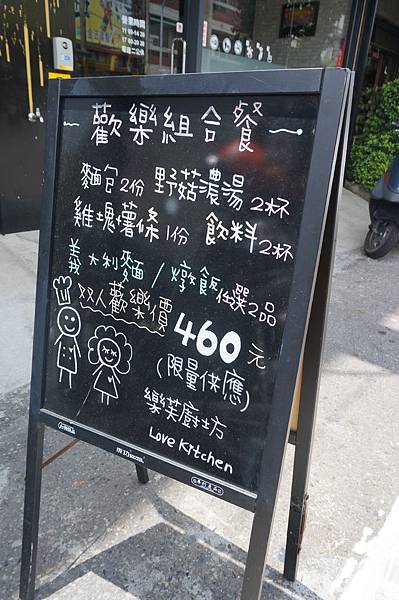 營業時間
歡樂組合餐
麵包2份 野菇濃湯2杯
雞塊薯條1份 飲料2杯
義大利麵/燉飯任選2品
双人歡樂價
460元
(限量供應)
樂芙廚坊
Love Kitchen